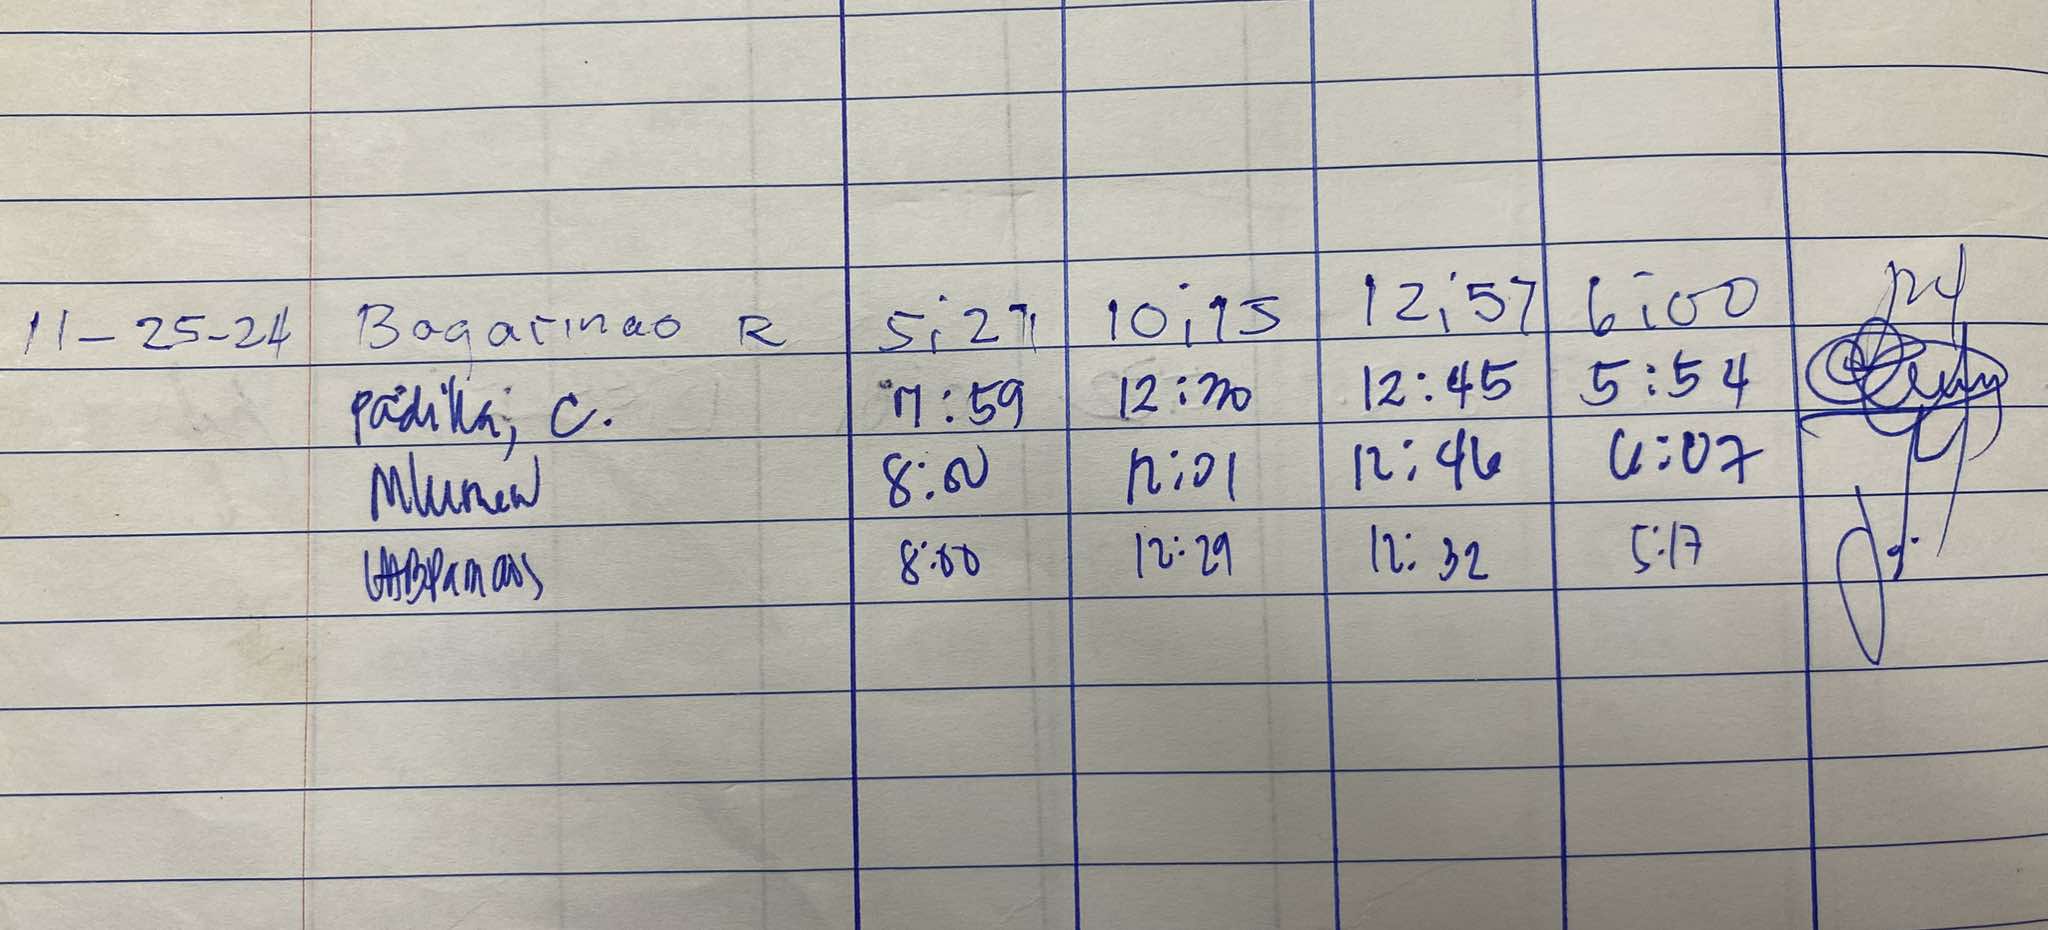 11-25-24 Bagarinao R 5:27 10:15 12:57 6:00
Padilla, C. 7:59 12:30 12:45 5:54
8:00 12:01 12:46 6:07
8:00 12:29 12:32 5:17